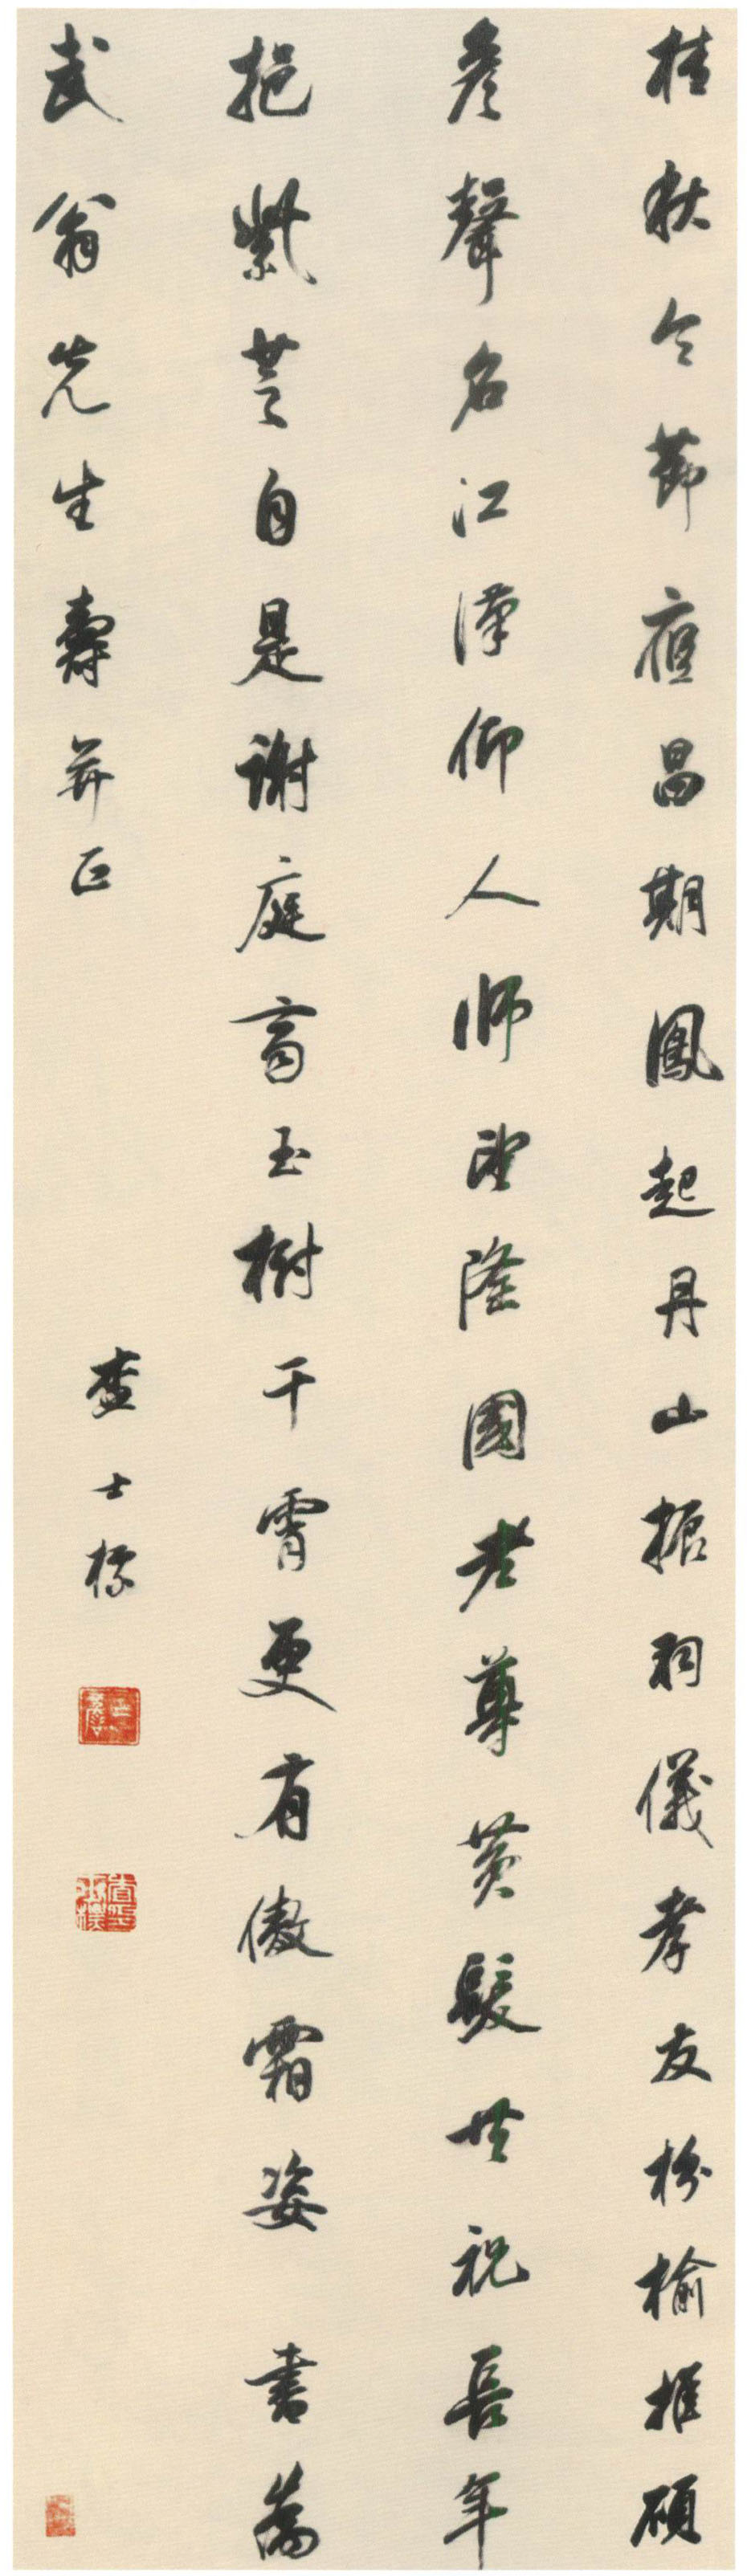 桂秋令節應昌期鳳起丹山振羽儀孝友枌榆推碩
彥聲名江漢仰人師望隆國老尊黃髮共祝長年
挹紫芝自是謝庭高玉樹干霄更有傲霜姿 書為
武翁先生壽并正
查士標